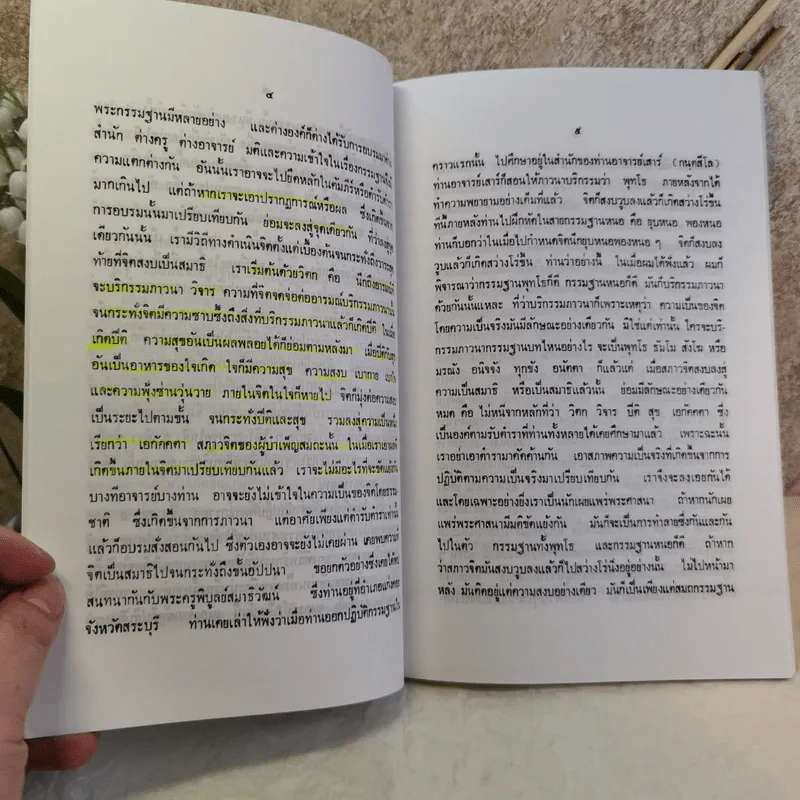 ๔
พระกรรมฐานมีหลายอย่าง และต่างองค์ก็ต่างได้รับการอบรมมาต่าง
สำนัก ต่างครู ต่างอาจารย์ มติและความเข้าใจในเรื่องกรรมฐานจึงมี
ความแตกต่างกัน อันนั้นเราอาจจะไปยึดหลักในคัมภีร์หรือตำรับตำรา
มากเกินไป แต่ถ้าหากเราจะเอาปรากฏการณ์หรือผล ซึ่งเกิดขึ้นจาก
การอบรมนั้นมาเปรียบเทียบกัน ย่อมจะลงสู่จุดเดียวกัน ที่ว่าลงสู่จุด
เดียวกันนั้น เรามีวิถีทางดำเนินจิตตั้งแต่เบื้องต้นจนกระทั่งถึงวาระสุด
ท้ายที่จิตสงบเป็นสมาธิ เราเริ่มต้นด้วยวิตก คือ นึกถึงอารมณ์ที่
จะบริกรรมภาวนา วิจาร ความที่จิตจดจ่อต่ออารมณ์บริกรรมภาวนานั้น
จนกระทั่งจิตมีความซาบซึ้งถึงสิ่งที่บริกรรมภาวนาแล้วก็เกิดปีติ ในเมื่อ
เกิดปีติ ความสุขอันเป็นผลพลอยได้ก็ย่อมตามหลังมา เมื่อปีติกับสุข
อันเป็นอาหารของใจเกิด ใจก็มีความสุข ความสงบ เบากาย เบาใจ
และความฟุ้งซ่านวุ่นวาย ภายในจิตในใจก็หายไป จิตก็มุ่งต่อความสงบ
เป็นระยะไปตามขั้น จนกระทั่งปีติและสุข รวมลงสู่ความเป็นหนึ่ง
เรียกว่า เอกัคคตา สภาวจิตของผู้บำเพ็ญสมถะนั้น ในเมื่อเราเอาผลที่
เกิดขึ้นภายในจิตมาเปรียบเทียบกันแล้ว เราจะไม่มีอะไรที่จะขัดแย้งกัน
บางทีอาจารย์บางท่าน อาจจะยังไม่เข้าใจในความเป็นของจิตโดยธรรม-
ชาติ ซึ่งเกิดขึ้นจากการภาวนา แต่อาศัยเพียงแต่ตำรับตำราเท่านั้น
แล้วก็อบรมสั่งสอนกันไป ซึ่งตัวเองอาจจะยังไม่เคยผ่าน เคยพบความที่
จิตเป็นสมาธิไปจนกระทั่งถึงขั้นอัปปนา ขอยกตัวอย่างซึ่งเคยได้พบ
สนทนากันกับพระครูพิบูลย์สมาธิวัฒน์ ซึ่งท่านอยู่ที่อำเภอแก่งคอย
จังหวัดสระบุรี ท่านเคยเล่าให้ฟังว่าเมื่อท่านออกปฏิบัติกรรมฐานใน
๕
คราวแรกนั้น ไปศึกษาอยู่ในสำนักของท่านอาจารย์เสาร์ (กนฺตสีโล)
ท่านอาจารย์เสาร์ก็สอนให้ภาวนาบริกรรมว่า พุทโธ ภายหลังจากได้
ทำความพยายามอย่างเต็มที่แล้ว จิตก็สงบวูบลงแล้วก็เกิดสว่างโร่ขึ้น
ทีนี้ภายหลังท่านไปฝึกหัดในสายกรรมฐานหนอ คือ ยุบหนอ พองหนอ
ท่านก็บอกว่าในเมื่อไปกำหนดจิตนึกยุบหนอพองหนอ ๆ จิตก็สงบลง
วูบแล้วก็เกิดสว่างโร่ขึ้น ท่านว่าอย่างนี้ ในเมื่อผมได้ฟังแล้ว ผมก็
พิจารณาว่ากรรมฐานพุทโธก็ดี กรรมฐานหนอก็ดี มันก็บริกรรมภาวนา
ด้วยกันนั้นแหละ ที่ว่าบริกรรมภาวนาก็เพราะเหตุว่า ความเป็นของจิต
โดยความเป็นจริงมันมีลักษณะอย่างเดียวกัน มิใช่แต่เท่านั้น ใครจะบริ-
กรรมภาวนากรรมฐานบทไหนอย่างไร จะเป็นพุทโธ ธัมโม สังโฆ หรือ
มรณัง อนิจจัง ทุกขัง อนัตตา ก็แล้วแต่ เมื่อสภาวจิตสงบลงสู่
ความเป็นสมาธิ หรือเป็นสมาธิแล้วนั้น ย่อมมีลักษณะอย่างเดียวกัน
หมด คือ ไม่หนีจากหลักที่ว่า วิตก วิจาร ปีติ สุข เอกัคคตา ซึ่ง
เป็นองค์ตามรับตำราที่ท่านทั้งหลายได้เคยศึกษามาแล้ว เพราะฉะนั้น
เราอย่าเอาตำรามาคัดค้านกัน เอาสภาพความเป็นจริงที่เกิดขึ้นจากการ
ปฏิบัติตามความเป็นจริงมาเปรียบเทียบกัน เราจึงจะลงเอยกันได้
และโดยเฉพาะอย่างยิ่งเราเป็นนักเผยแพร่พระศาสนา ถ้าหากนักเผย
แพร่พระศาสนามีมติขัดแย้งกัน มันก็จะเป็นการทำลายซึ่งกันและกัน
ไปในตัว กรรมฐานทั้งพุทโธ และกรรมฐานหนอก็ดี ถ้าหาก
ว่าสภาวจิตมันสงบวูบลงแล้วก็ไปสว่างโร่นิ่งอยู่อย่างนั้น ไม่ไปหน้ามา
หลัง มันติดอยู่แต่ความสงบอย่างเดียว มันก็เป็นเพียงแต่สมถกรรมฐาน